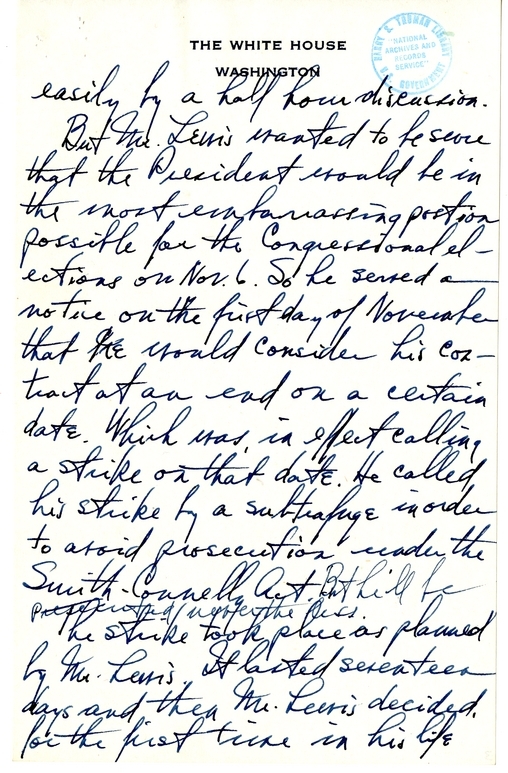 THE WHITE HOUSE
WASHINGTON
HARRY S. TRUMAN LIBRARY
"NATIONAL
ARCHIVES AND
RECORDS
SERVICE"
U.S. GOVERNMENT
easily by a half hour discussion.
But Mr. Lewis wanted to be sure
that the President would be in
the most embarrassing postion
possible for the Congressional el-
ections on Nov. 6. So he served a
notice on the first day of November
that he would consider his con-
tract at an end on a certain
date. Which was, in effect calling
a strike on that date. He called
his strike by a subtrafuge in order
to avoid prosecution under the
Smith-Connelly Act. But he'll be
prosecuted under the law
The strike took place as planned
by Mr. Lewis. It lasted seventeen
days and then Mr. Lewis decided,
for the first time in his life